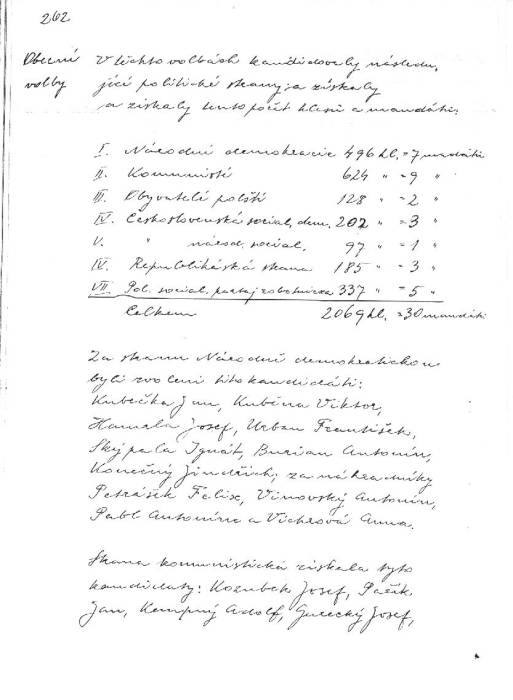 262
Obecní volby
V těchto volbách kandidovaly následu-
jící politické strany a získaly
a získaly tento počet hlasů a mandátů:
I. Národní demokracie 496 hl. = 7 mandátů
II. Komunisté 624 " = 9 "
III. Obyvatelé polští 128 " = 2 "
IV. Československá sociál. dem. 202 " = 3 "
V. " národ. sociál. 97 " = 1 "
IV. Republikánská strana 185 " = 3 "
VII. Pol. social. partaj robotnicza 337 " = 5 "
Celkem 2069 hl. = 30 mandátů
Za stranu Národně demokratickou
byli zvoleni tito kandidáti:
Kubečka Jan, Kuběna Viktor,
Hamala Josef, Urban František,
Skýpala Ignát, Burian Antonín,
Konečný Jindřich; za náhradníky
Petrášek Felix, Vinovský Antonín,
Pabl Antonín a Vichrová Anna.
Strana komunistická získala tyto
kandidáty: Kozubek Josef, Pačík
Jan, Kempný Adolf, Josef,